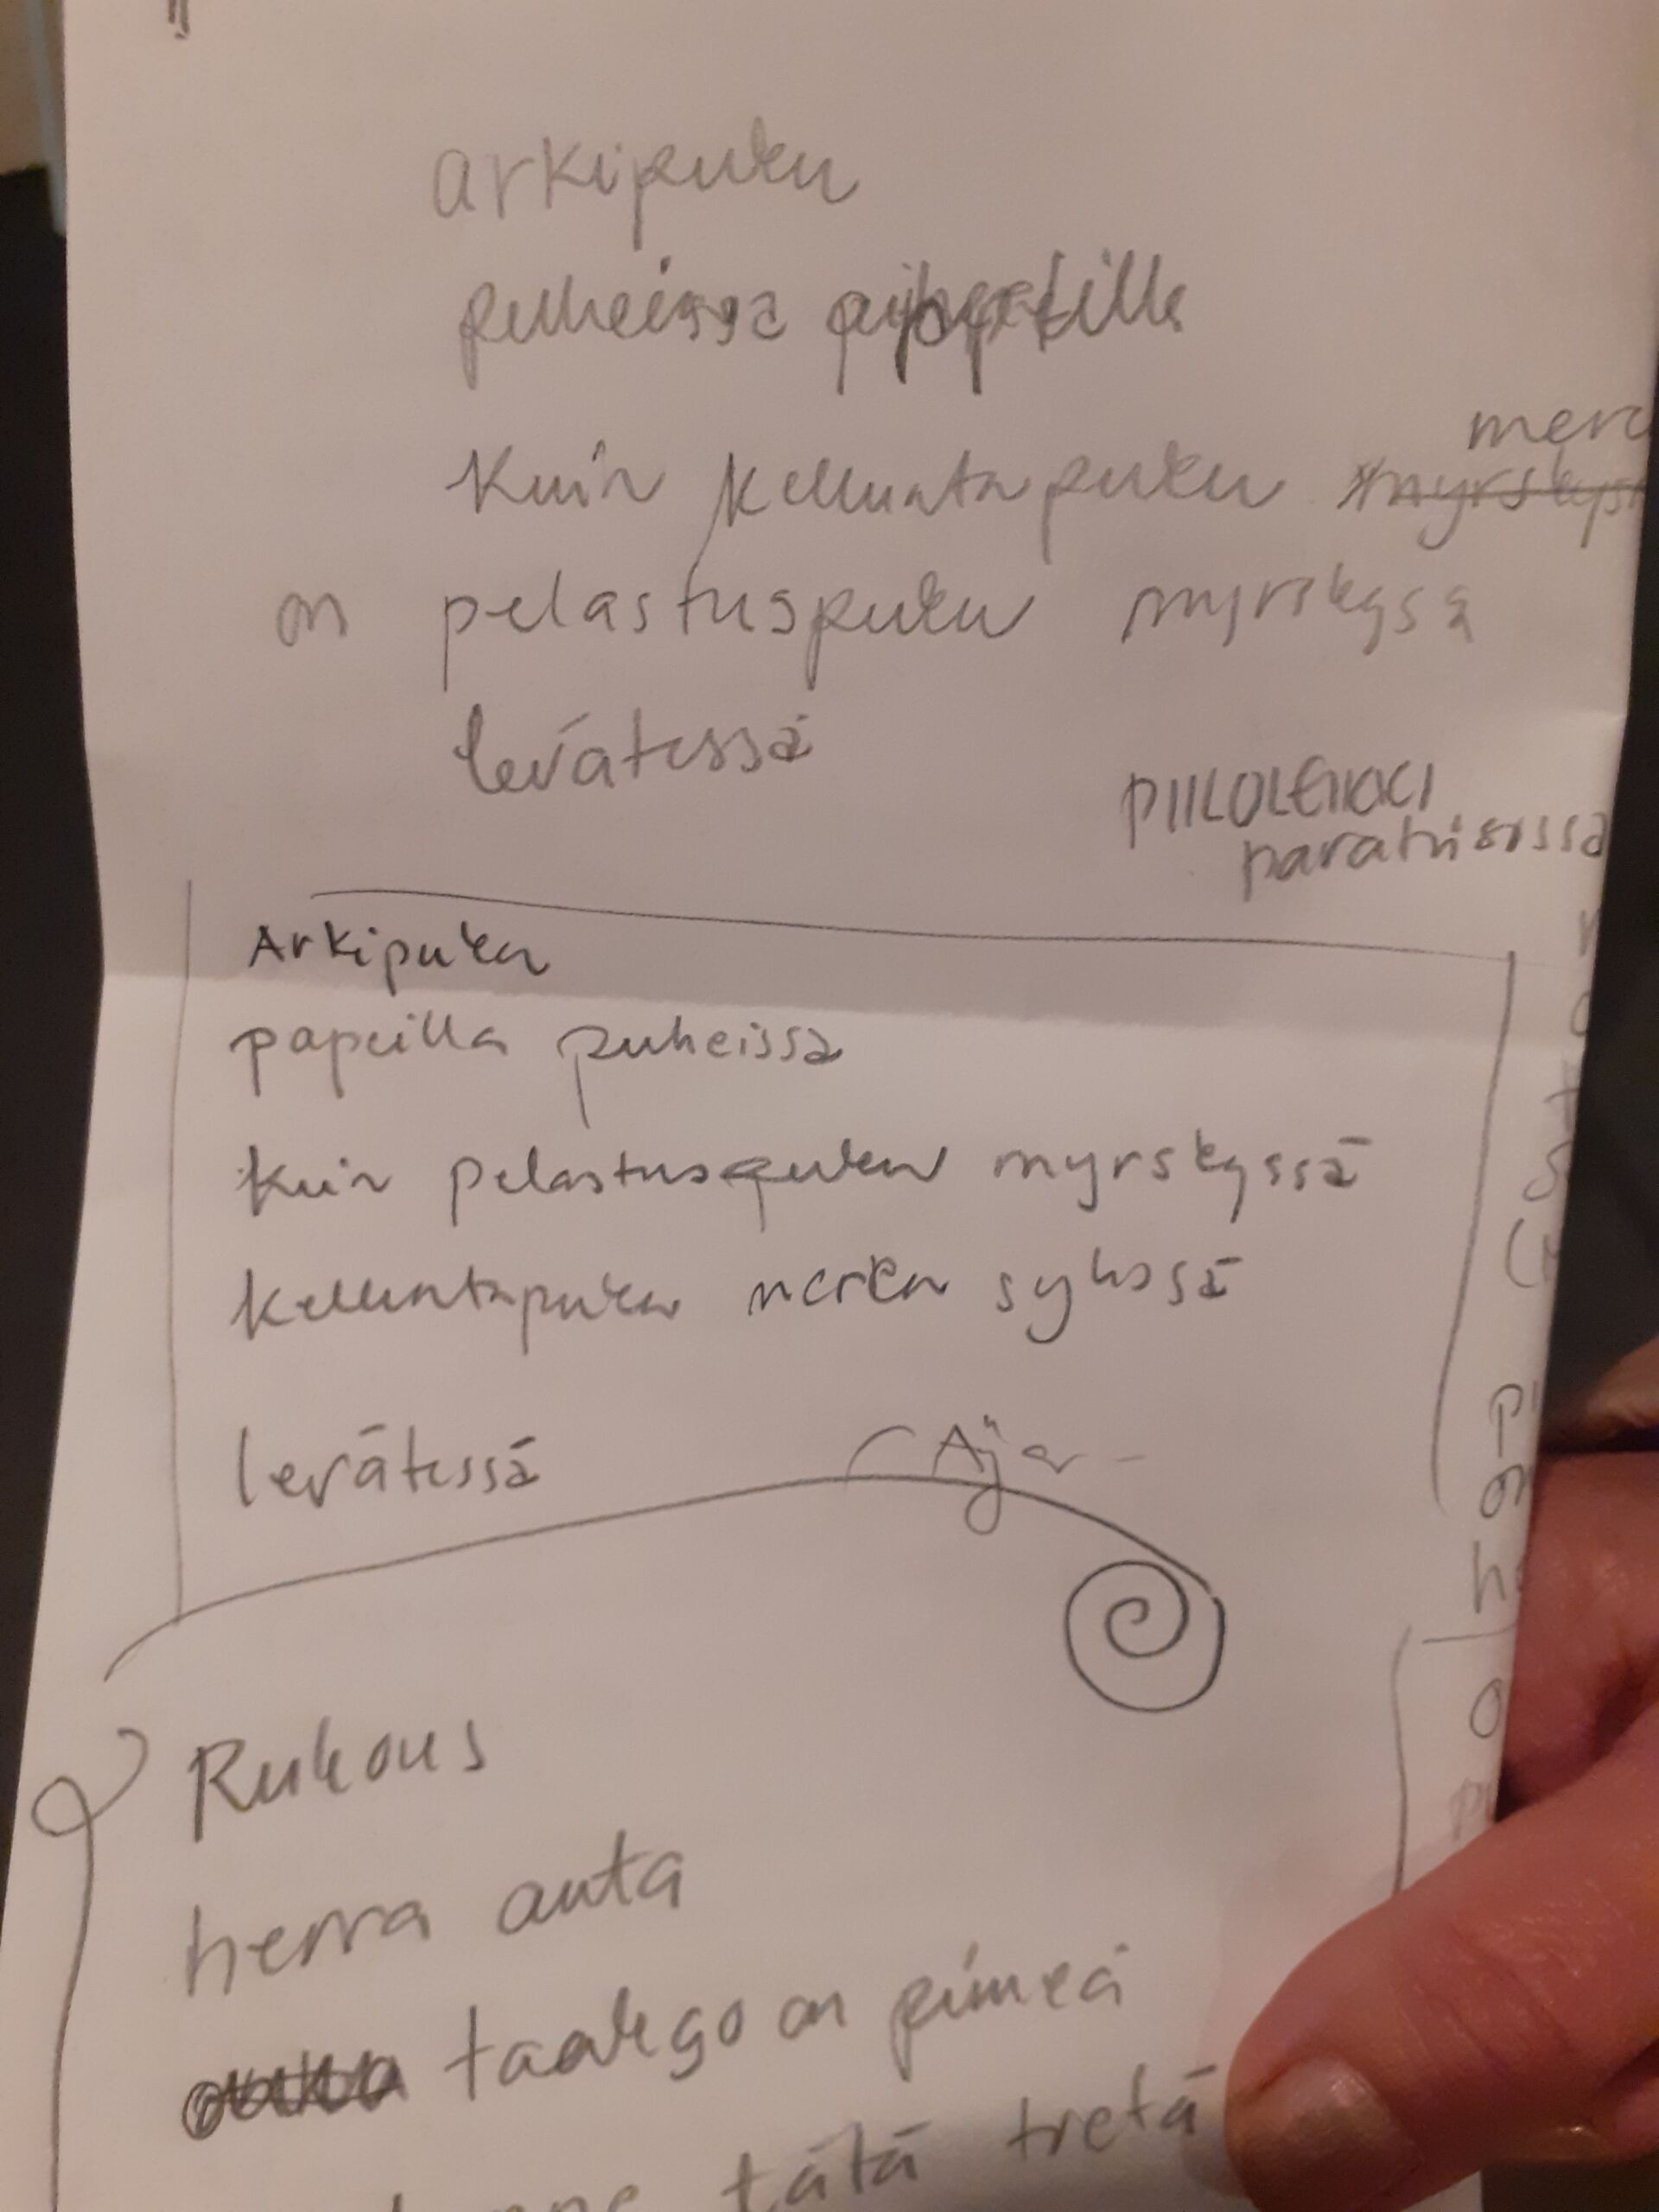 arkipuku
puheissa
mere
Kuin kelluntapuku
on pelastuspuku myrskysä
levätessä
PIILOLEIKKI
paratiisissa
Arkipuku
papeilla puheissa
kuin pelastuspuku myrskyssä
kelluntapuku meren sylissä
levätessä
Rukous
herra auta
on pimeä
tätä tietä